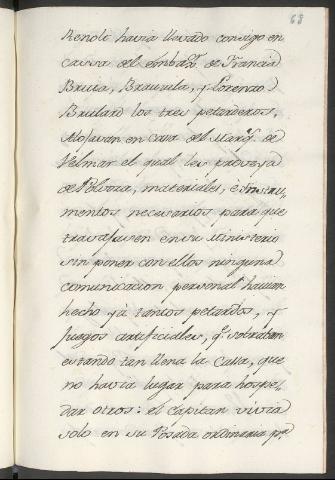 68
Renolt havia llevado consigo en
cassa del embax.r de Francia
Bruta, Brauvila, y Lorenzo
Brulard los tres petarderos,
Alojavan en casa del Marq.s de
Velmar el qual les proveya
de Polvora, materiales, è Instru-
mentos necesarios para que
travajasen en su Ministerio
sin poner con ellos ninguna
comunicacion personal havian
hecho yà tantos petardos, y
fuegos artificiales, q.e
estando tan llena la Cassa, que
no havia lugar para hospe-
dar otros: el Capitan vivia
solo en su Posada ordinaria p.r